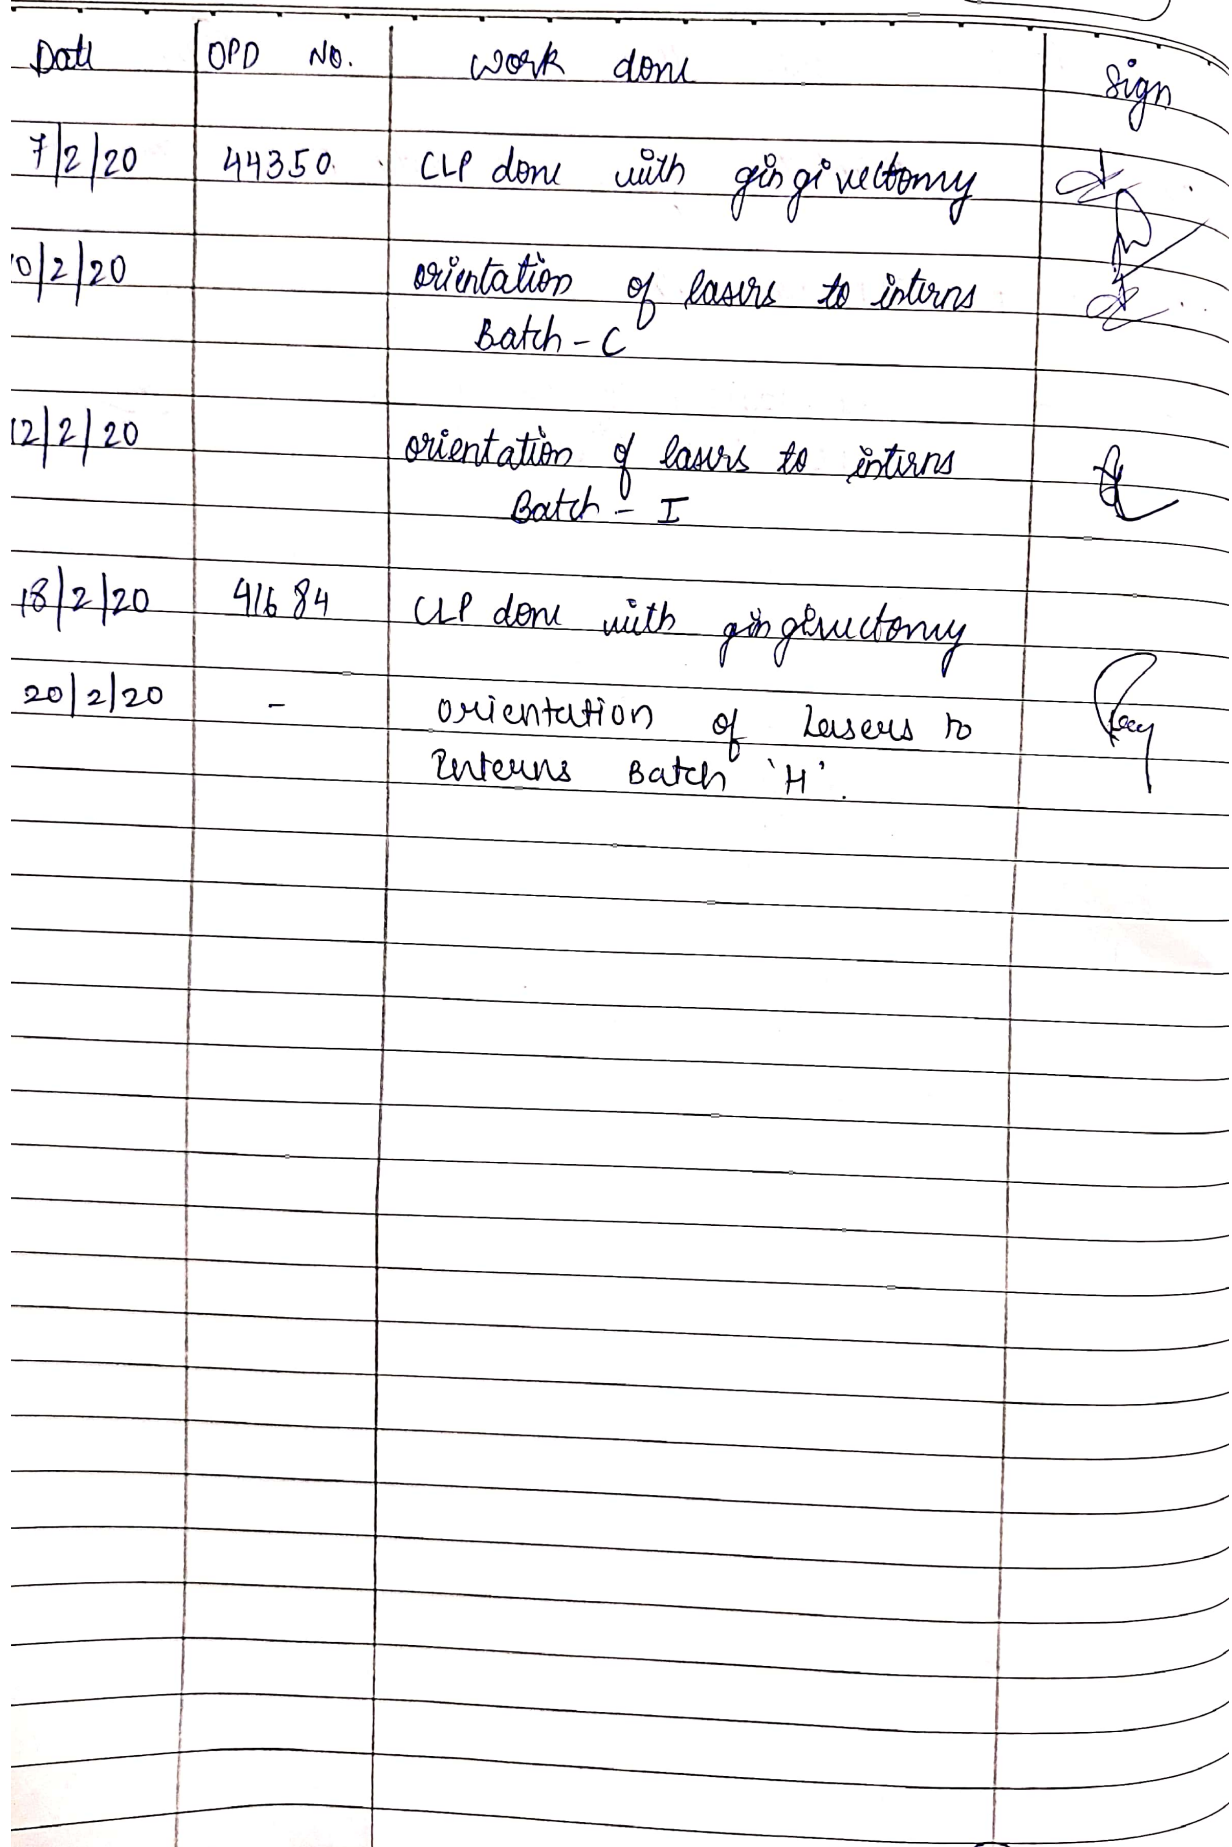 Date OPD No. Work done Sign
7/2/20 44350. CLP done with gingivectomy
0/2/20 orientation of lasers to interns
Batch - C
12/2/20 orientation of lasers to interns
Batch - I
18/2/20 41684 CLP done with gingivectomy
20/2/20 - orientation of Lasers to
Interns Batch 'H'.